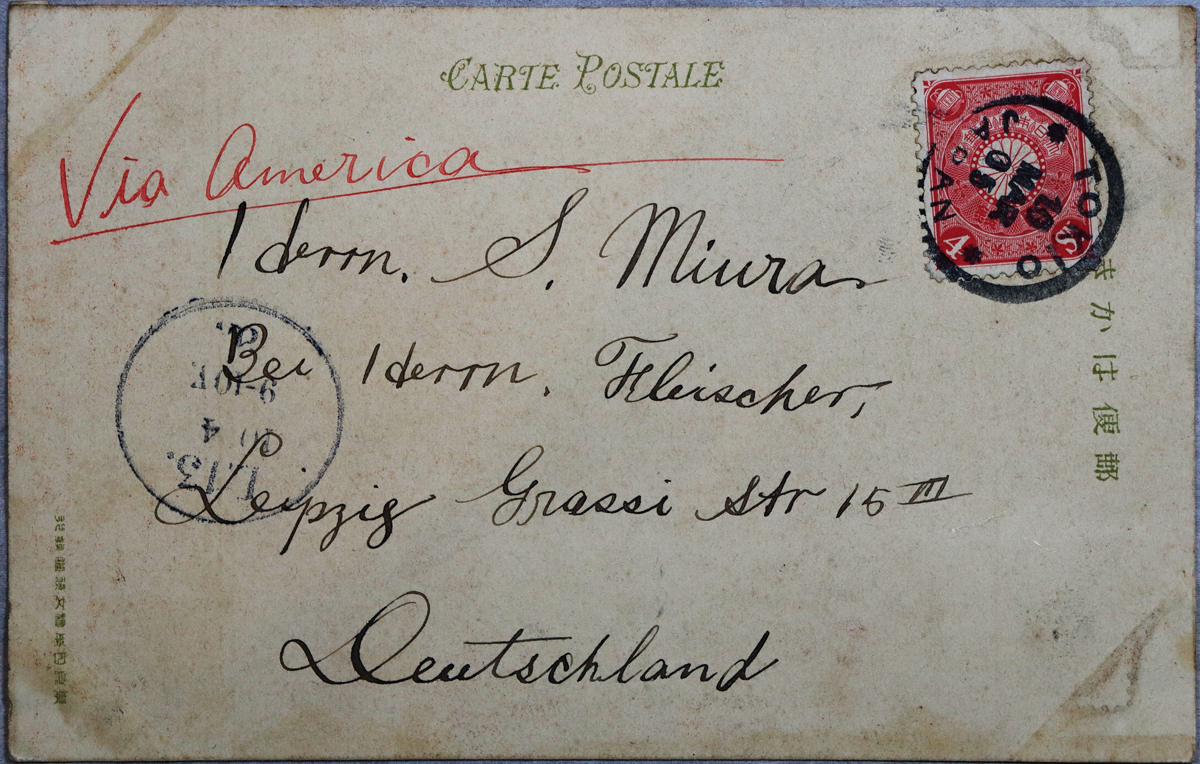 CARTE POSTALE
Via America
Herrn. S. Miura
Bei Herrn. Fleischer,
Leipzig Grassi Str 15 III
Deutschland
TOKIO
MAR
05
JAPAN
4 Sn
郵便はかき
L. 13.
4
9-10 V
d.